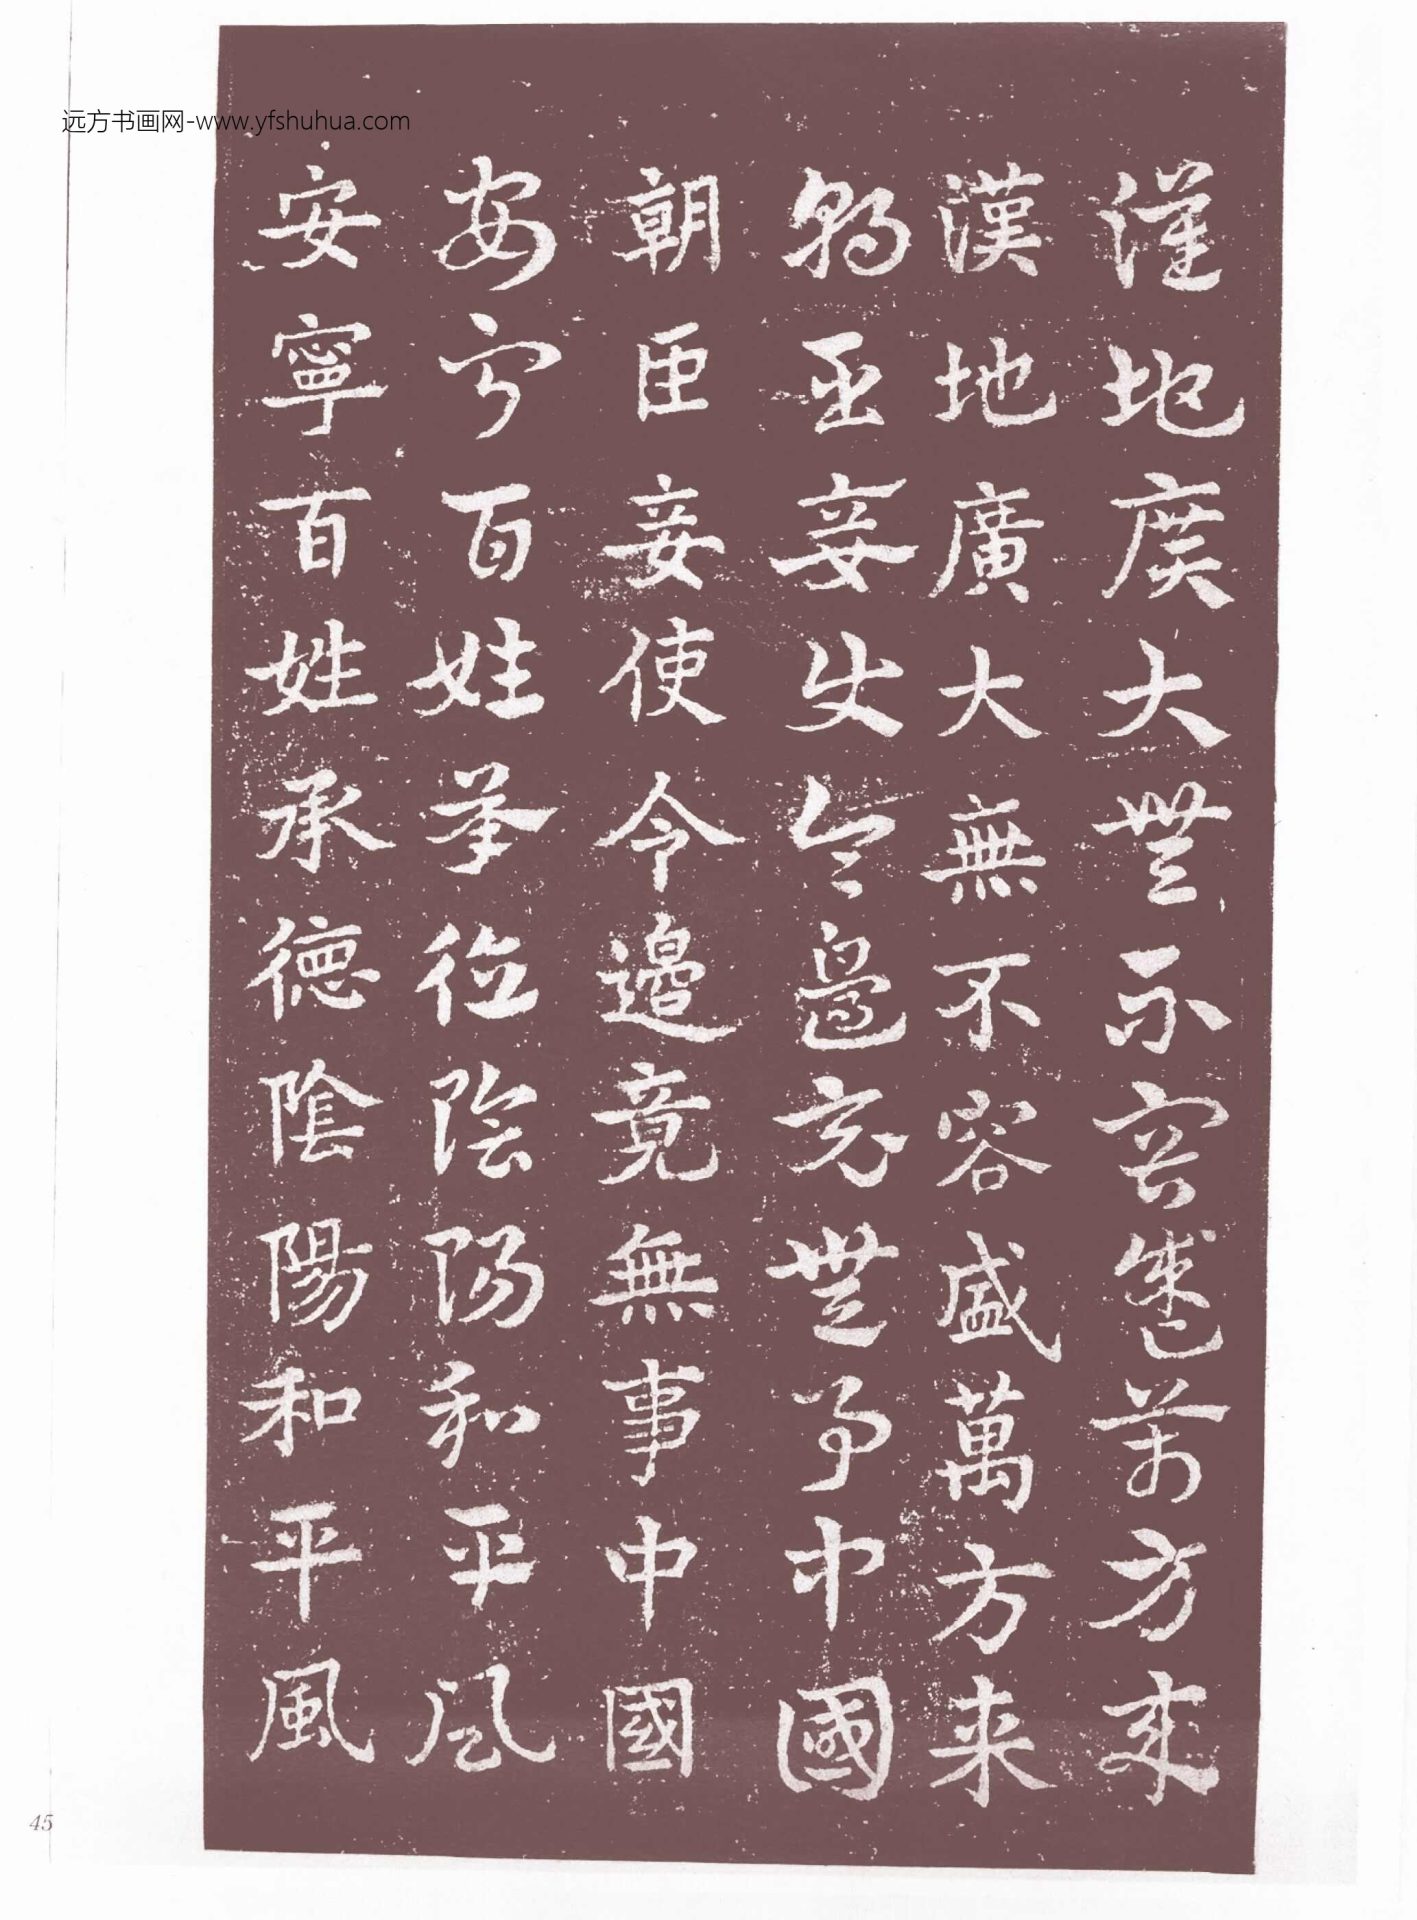 远方书画网-www.yfshuhua.com
漢地廣大無不容盛萬方来
漢地廣大無不容盛萬方来
朝臣妾使令邊竟無事中國
朝臣妾使令邊竟無事中國
安寧百姓承德陰陽和平風
安寧百姓承德陰陽和平風
45